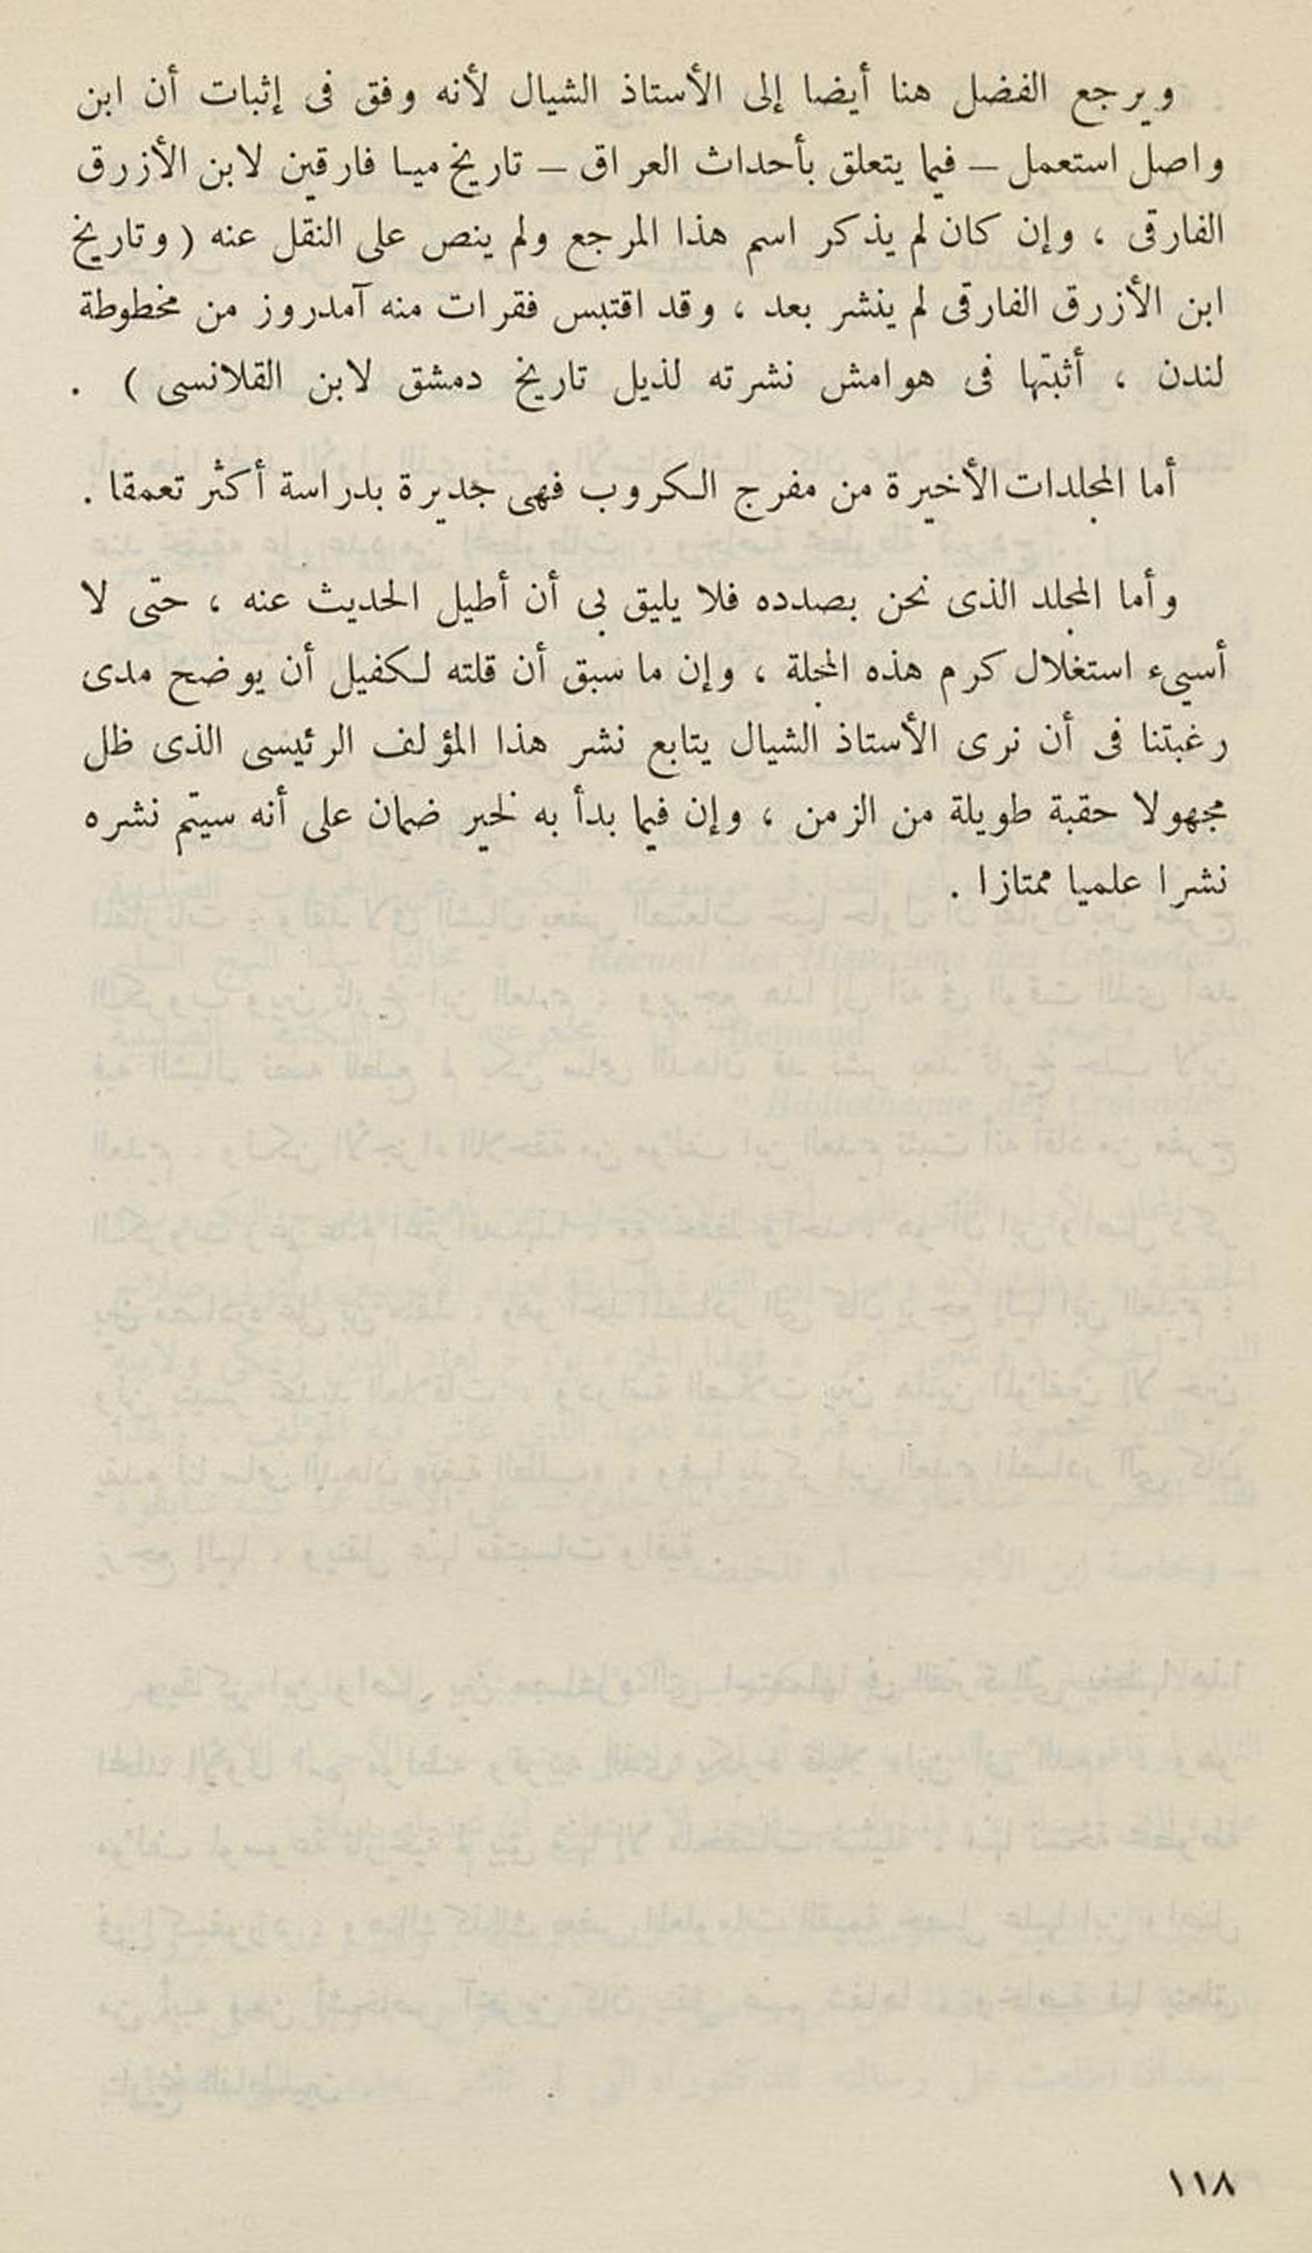 ويرجع الفضل هنا أيضا إلى الأستاذ الشيال لأنه وفق فى إثبات أن ابن
واصل استعمل – فيما يتعلق بأحداث العراق – تاريخ ميا فارقين لابن الأزرق
الفارقى ، وإن كان لم يذكر اسم هذا المرجع ولم ينص على النقل عنه ( وتاريخ
ابن الأزرق الفارقى لم ينشر بعد ، وقد اقتبس فقرات منه آمدروز من مخطوطة
لندن ، أثبتها فى هوامش نشرته لذيل تاريخ دمشق لابن القلانسى ) .
أما المجلدات الأخيرة من مفرج الكروب فهى جديرة بدراسة أكثر تعمقا .
وأما المجلد الذى نحن بصدده فلا يليق بى أن أطيل الحديث عنه ، حتى لا
أسيىء استغلال كرم هذه المجلة ، وإن ما سبق أن قلته لكفيل أن يوضح مدى
رغبتنا فى أن نرى الأستاذ الشيال يتابع نشر هذا المؤلف الرئيسى الذى ظل
مجهولا حقبة طويلة من الزمن ، وإن فيما بدأ به لخير ضمان على أنه سيتم نشره
نشرا علميا ممتازا .
١١٨